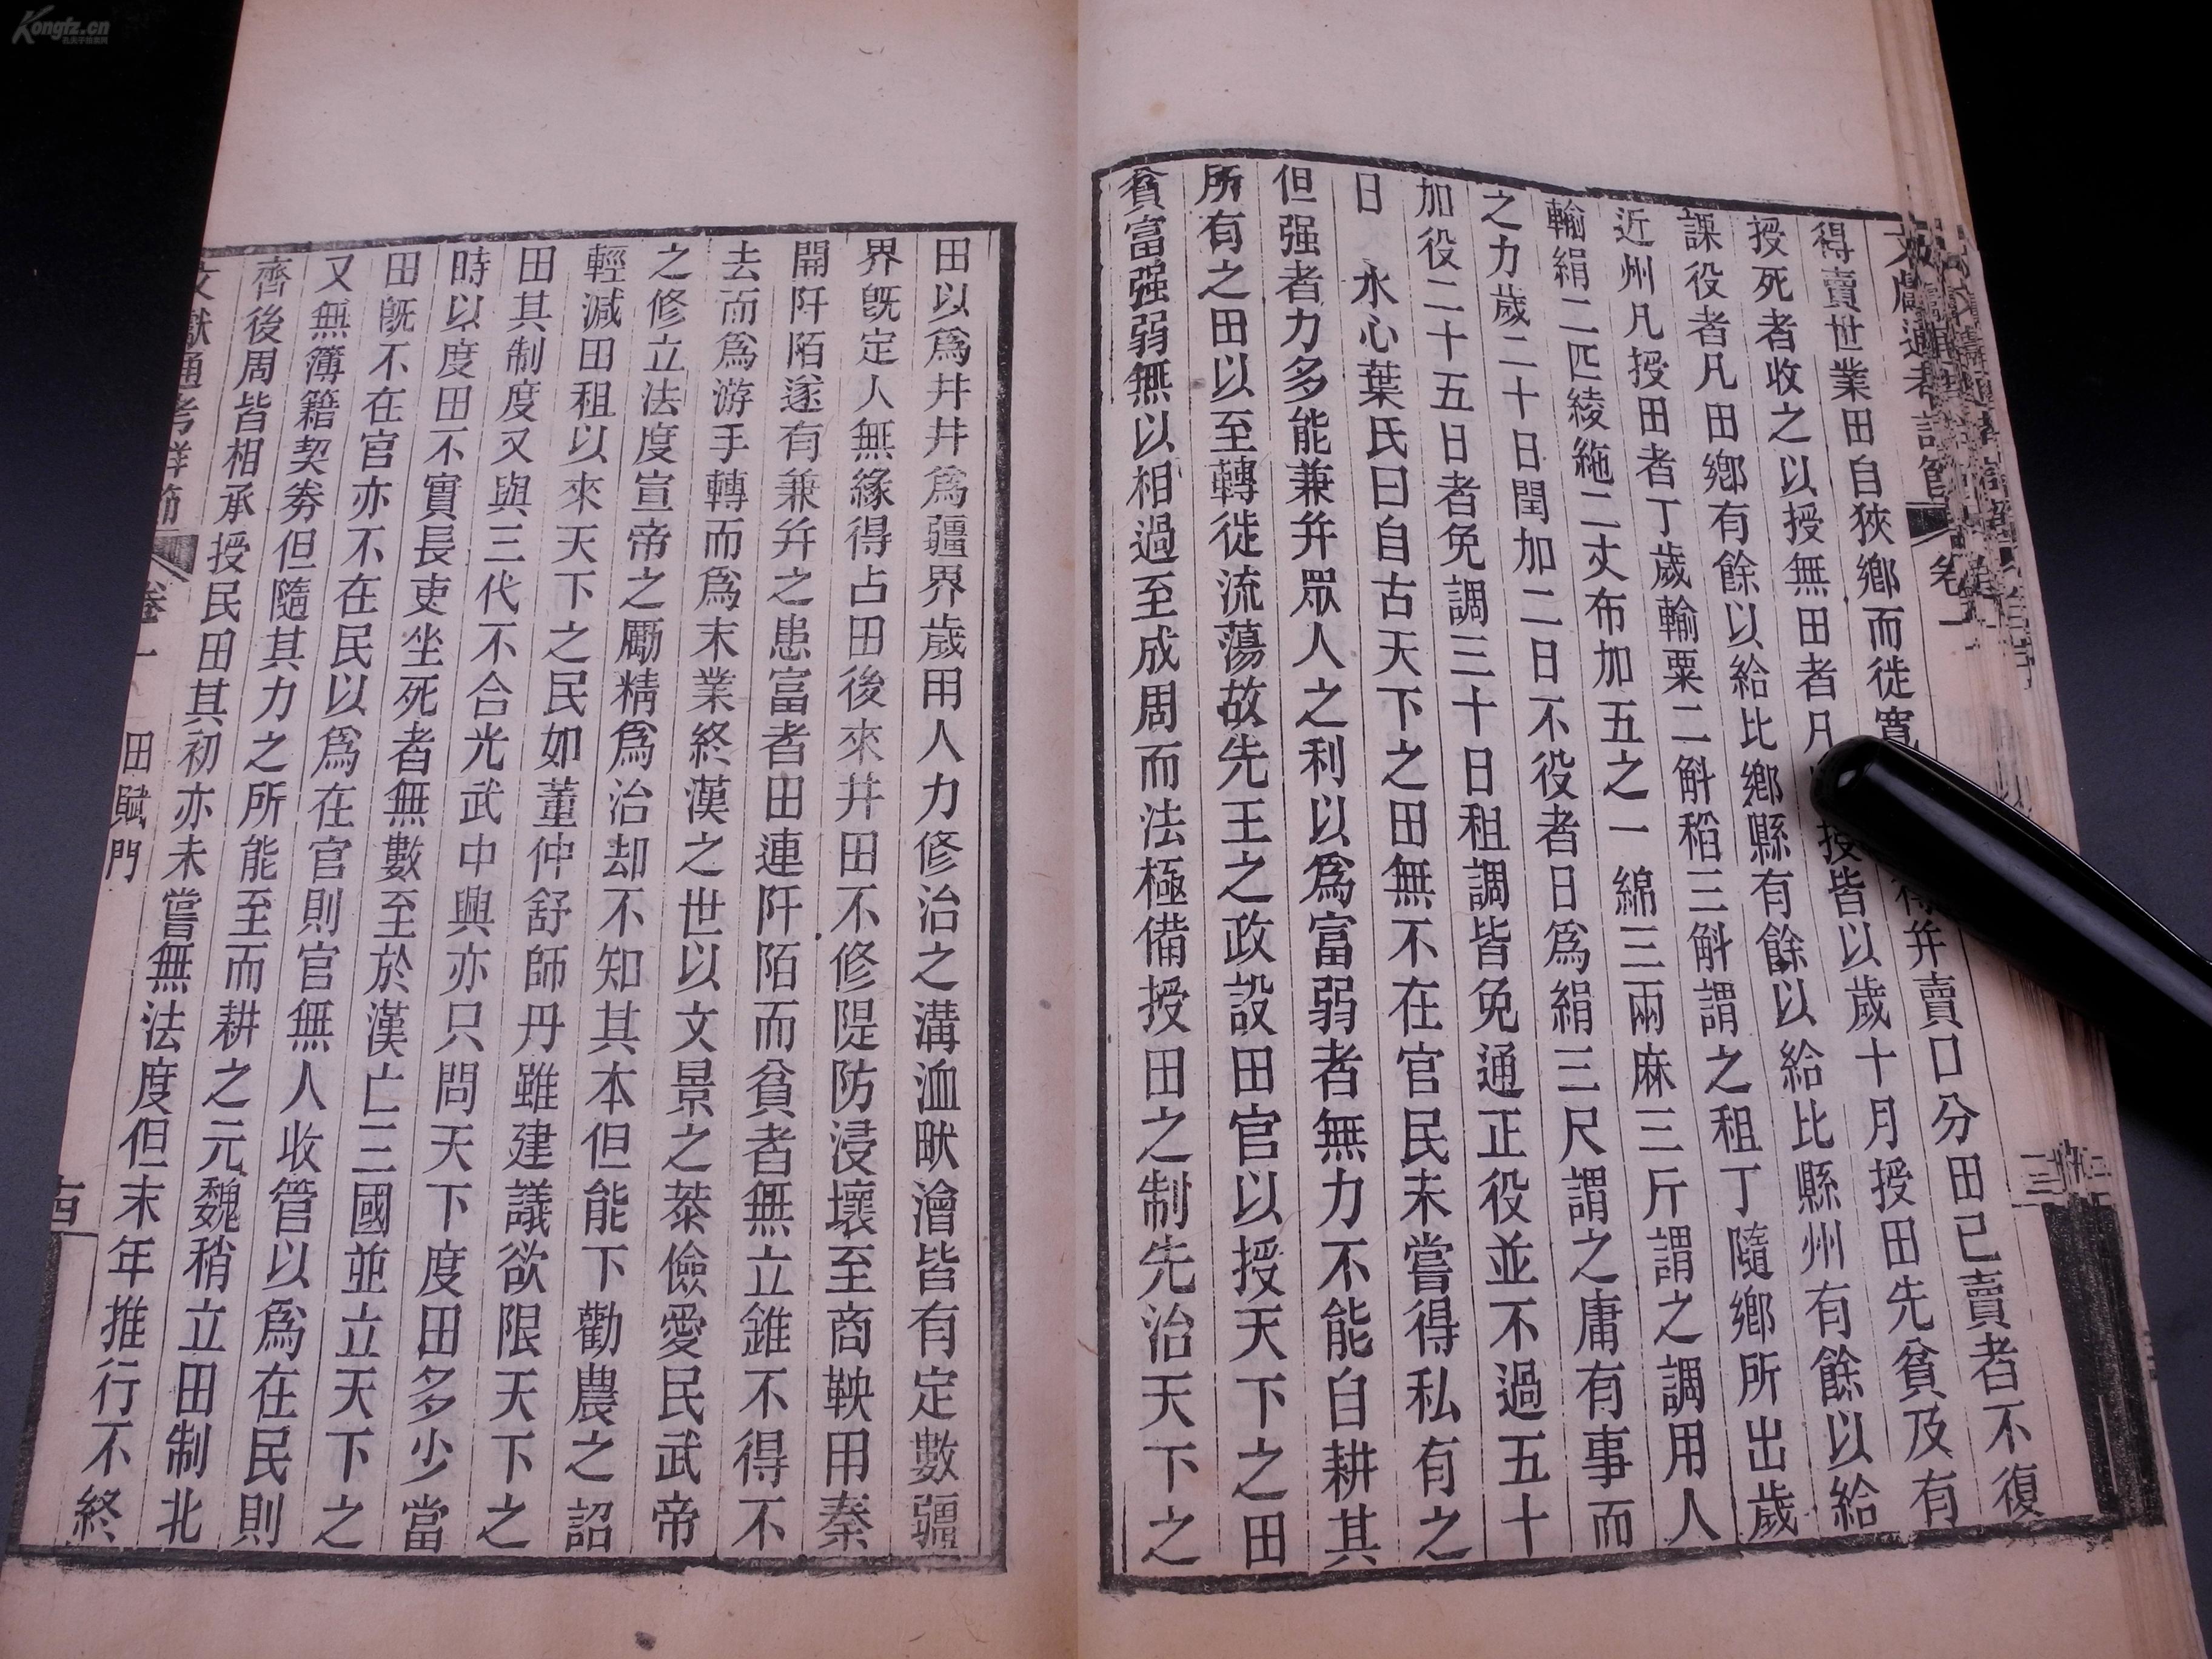 得賣世業田自狹鄉而徙寬得并賣口分田已賣者不復
授死者收之以授無田者凡授皆以歲十月授田先貧及有
課役者凡田鄉有餘以給比鄉縣有餘以給比縣州有餘以給
近州凡授田者丁歲輸粟二斛稻三斛謂之租丁隨鄉所出歲
輸絹二匹綾絁二丈布加五之一綿三兩麻三斤謂之調用人
之力歲二十日閏加二日不役者日爲絹三尺謂之庸有事而
加役二十五日者免調三十日租調皆免通正役並不過五十
日　水心葉氏曰自古天下之田無不在官民未嘗得私有之
但强者力多能兼并眾人之利以爲富弱者無力不能自耕其
所有之田以至轉徙流蕩故先王之政設田官以授天下之田
貧富强弱無以相過至成周而法極備授田之制先治天下之
田以爲井井爲疆界歲用人力修治之溝洫畎澮皆有定數疆
界旣定人無緣得占田後來井田不修隄防浸壞至商鞅用秦
開阡陌遂有兼并之患富者田連阡陌而貧者無立錐不得不
去而爲游手轉而爲末業終漢之世以文景之恭儉愛民武帝
之修立法度宣帝之勵精爲治却不知其本但能下勸農之詔
輕減田租以來天下之民如董仲舒師丹雖建議欲限天下之
田其制度又與三代不合光武中興亦只問天下度田多少當
時以度田不實長吏坐死者無數至於漢亡三國並立天下之
田旣不在官亦不在民以爲在官則官無人收管以爲在民則
又無簿籍契券但隨其力之所能至而耕之元魏稍立田制北
齊後周皆相承授民田其初亦未嘗無法度但末年推行不終
文獻通考詳節　卷一　田賦門
Kongfz.cn